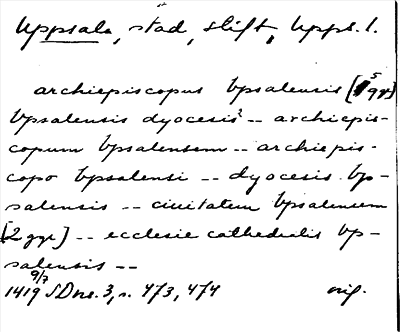 Uppsala, stad, stift, Upps. l.
archiepiscopus Vpsalensis [5 ggr]
Vpsalensis dyocesis -- archiepis-
copum Vpsalensem -- archiepis-
copo Vpsalensi -- dyocesis Vp-
salensis -- ciuitatem Vpsalensem
[2 ggr] -- ecclesie cathedralis Vp-
salensis --
1419 9/7 SDns. 3, s. 473, 474 orig.